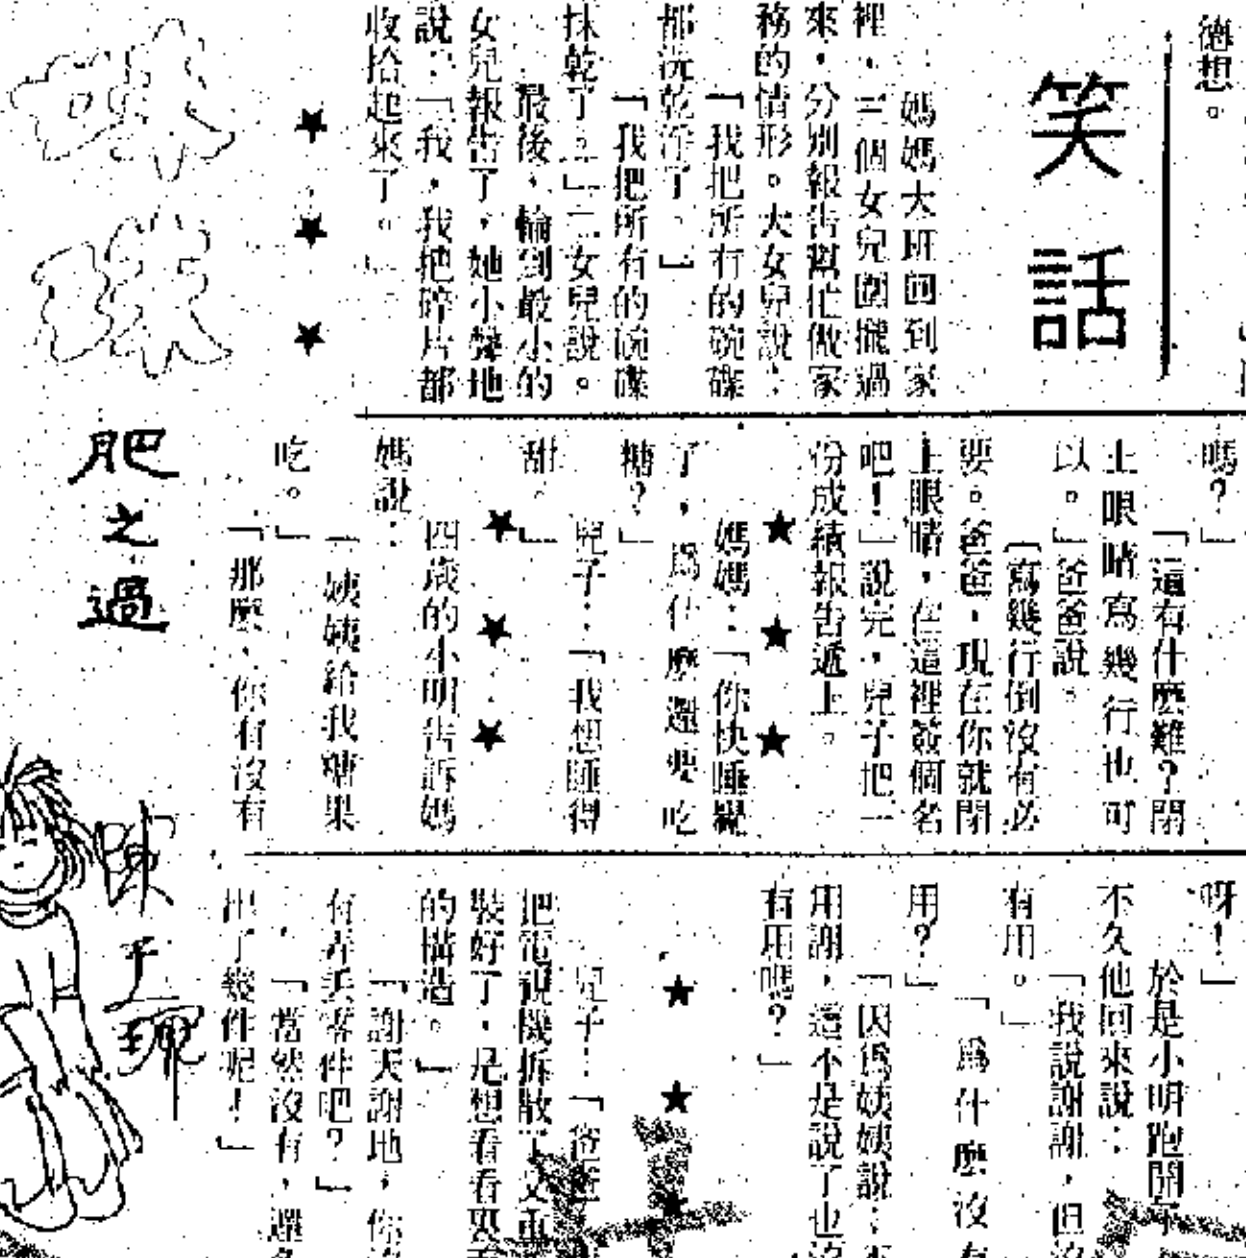 德想。
笑話
媽媽大班回到家
裡，三個女兒圍攏過
來，分別報告幫忙做家
務的情形。大女兒說：
「我把所有的碗碟
都洗乾淨了。」
「我把所有的碗碟
抹乾了。」二女兒說。
最後，輪到最小的
女兒報告了，她小聲地
說：「我，我把碎片都
收拾起來了。」
★★★
嗎？」
「這有什麼難？閉
上眼睛寫幾行也可
以。」爸爸說。
「寫幾行倒沒有必
要。爸爸，現在你就閉
上眼睛，在這裡簽個名
吧！」說完，兒子把一
份成績報告遞上。
★★★
媽媽：「你快睡覺
了，為什麼還要吃
糖？」
兒子：「我想睡得
甜。」
★★★
四歲的小明告訴媽
媽說：
「姨姨給我糖果
吃。」
「那麼，你有沒有
呀！」
於是小明跑開了，
不久他回來說：
「我說謝謝，但沒
有用。」
「為什麼沒有
用？」
「因為姨姨說：不
用謝，這不是說了也沒
有用嗎？」
★★★
兒子：「爸爸
把電視機拆散了又重
裝好了，是想看看裏面
的構造。」
「謝天謝地，你沒
有弄丟零件吧？」
「當然沒有，還多
出了幾件呢！」
珠珠
肥之過
陳于珮